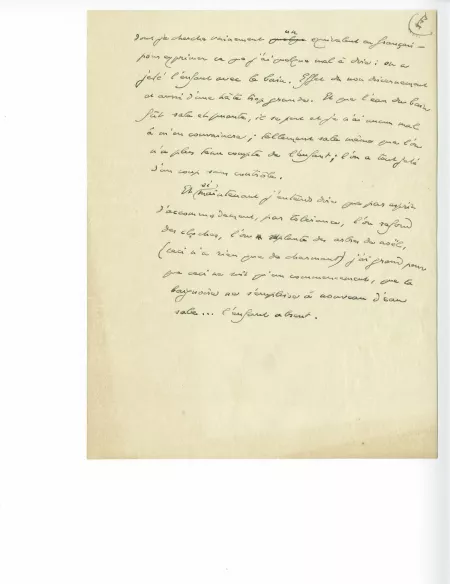 dont je cherche vainement un équivalent en français —
pour exprimer ce que j'ai quelque mal à dire : on a
jeté l'enfant avec le bain. Effet de non discernement
et aussi d'une hâte trop grande. Et que l'eau du bain
fût sale et puante, il se peut et je n'ai aucun mal
à m'en convaincre ; tellement sale même que l'on
n'a plus tenu compte de l'enfant ; l'on a tout jeté
d'un coup sans contrôle.
Et si maintenant j'entends dire que par esprit
d'accommodement, par tolérance, l'on refond
des cloches, l'on replante des arbres de noël,
(ceci n'a rien que de charmant) j'ai grand peur
que ceci ne soit qu'un commencement, que la
baignoire ne s'emplisse à nouveau d'eau
sale... l'enfant absent.